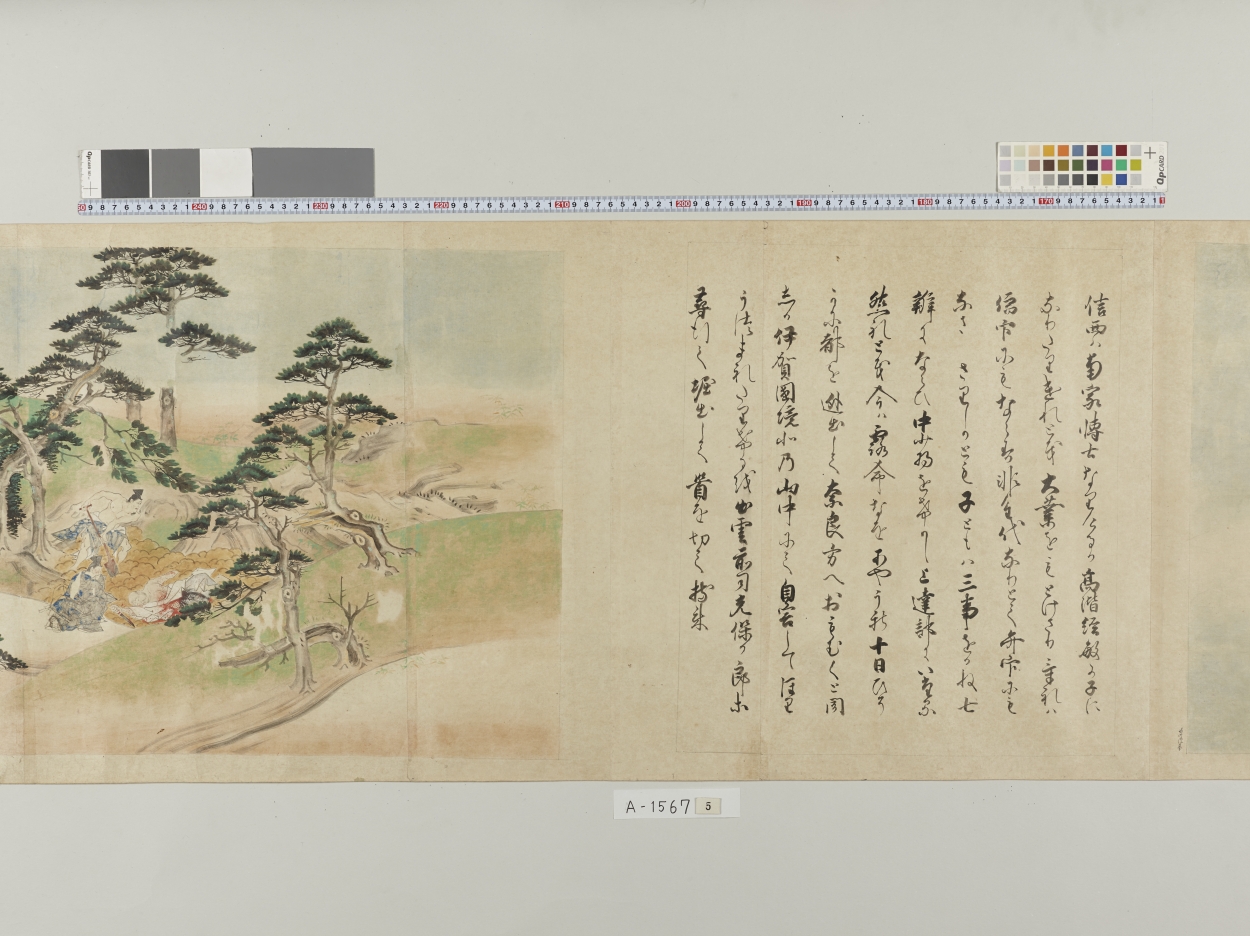 信西ハ南家博士なりけるか高階経敏か子に
なりたりけれは大業をもとけさりけれハ
儒官にもならす非重代なりとて弁官にも
なさゝりしかとも子ともハ三事をかね七
辨にならひ中少将をけかし上達部にいたる
然れとも今ハ露命なをあやうし十日ひそ
かに都を逃出して奈良方へおもむくと聞
しか伊賀國境の山中にて自害してほり
うつまれたりけるを出雲前司光保か郎等
尋行て堀出して首を切て持来
A-1567 5
QpCARD